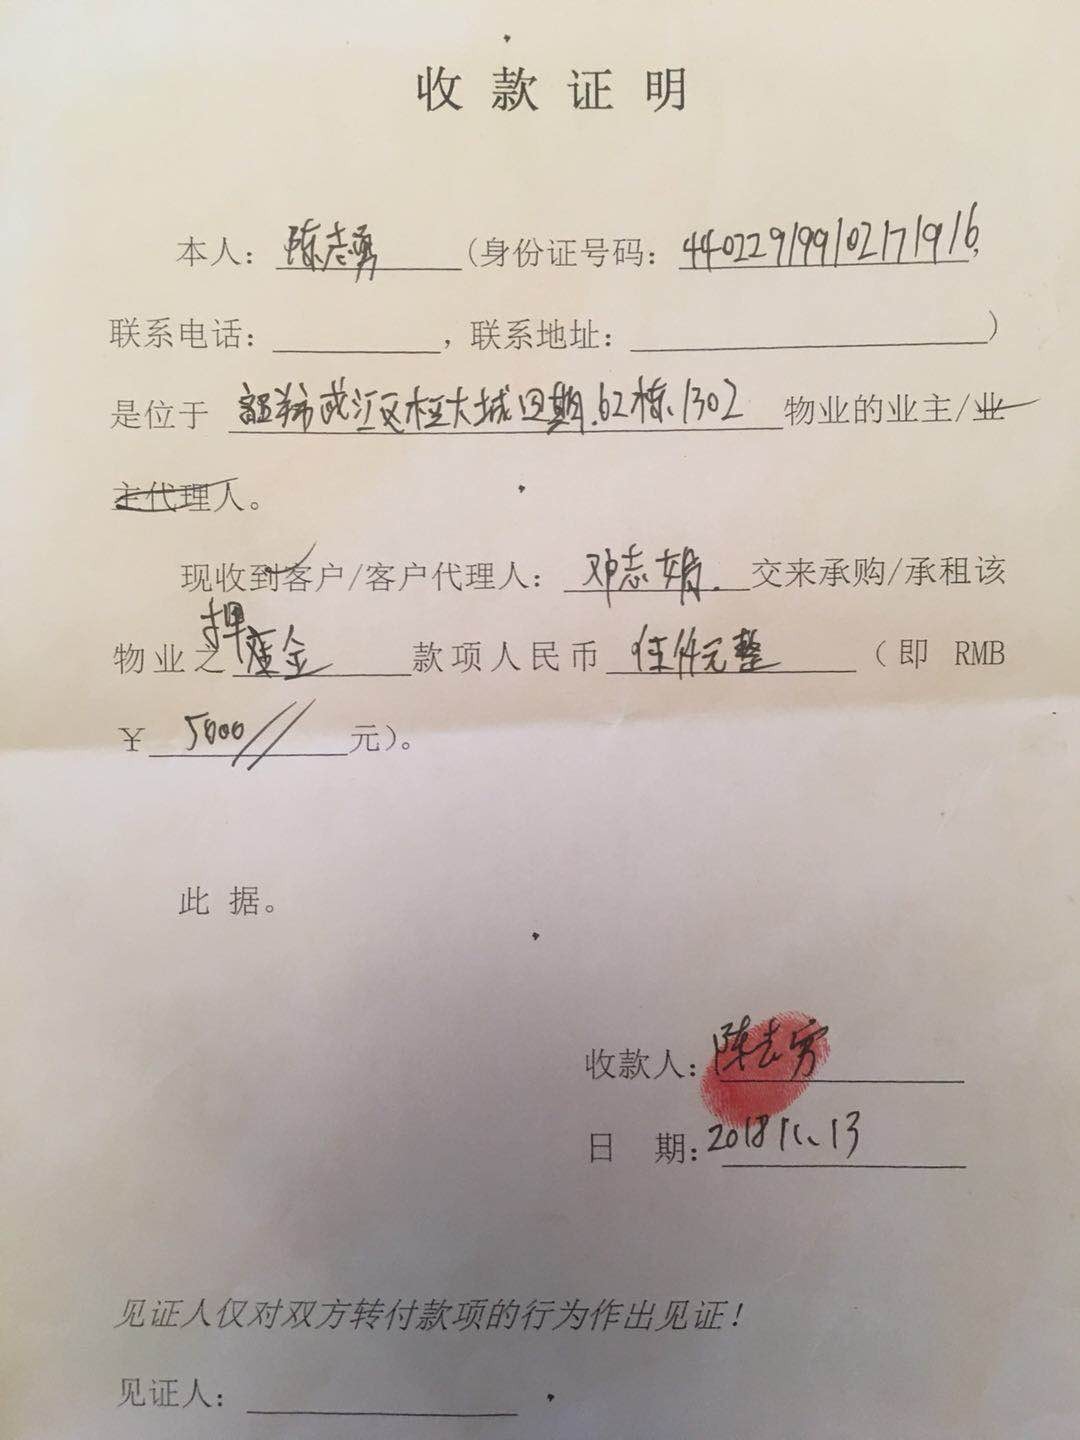 收款证明
本人：陈志勇（身份证号码：440229199102171916，
联系电话：，联系地址：）
是位于 韶关市武江区 大城四期.62栋.1302 物业的业主/业
主代理人。
现收到客户/客户代理人：邓志娟. 交来承购/承租该
物业之 押金 款项人民币 伍仟元整 （即 RMB
￥5000//元）。
此 据。
收款人：陈志勇
日 期：2018 11、13
见证人仅对双方转付款项的行为作出见证！
见证人：